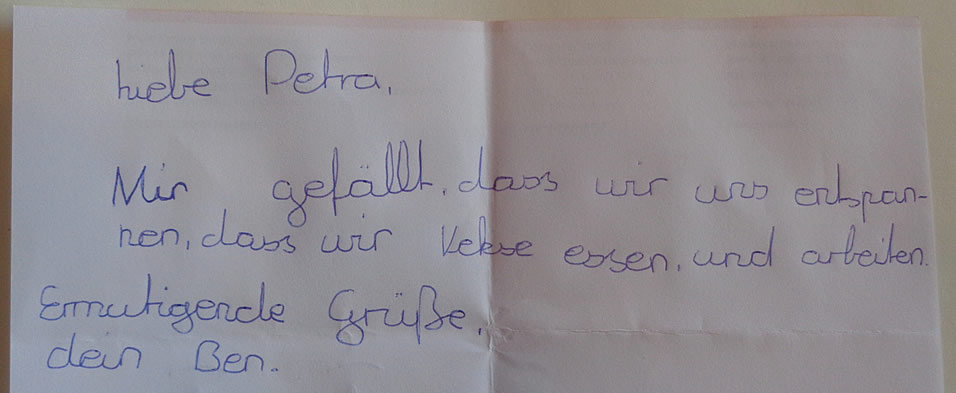 Liebe Petra,
Mir gefällt, dass wir uns entspan-
nen, dass wir Kekse essen, und arbeiten.
Ermutigende Grüße,
dein Ben.